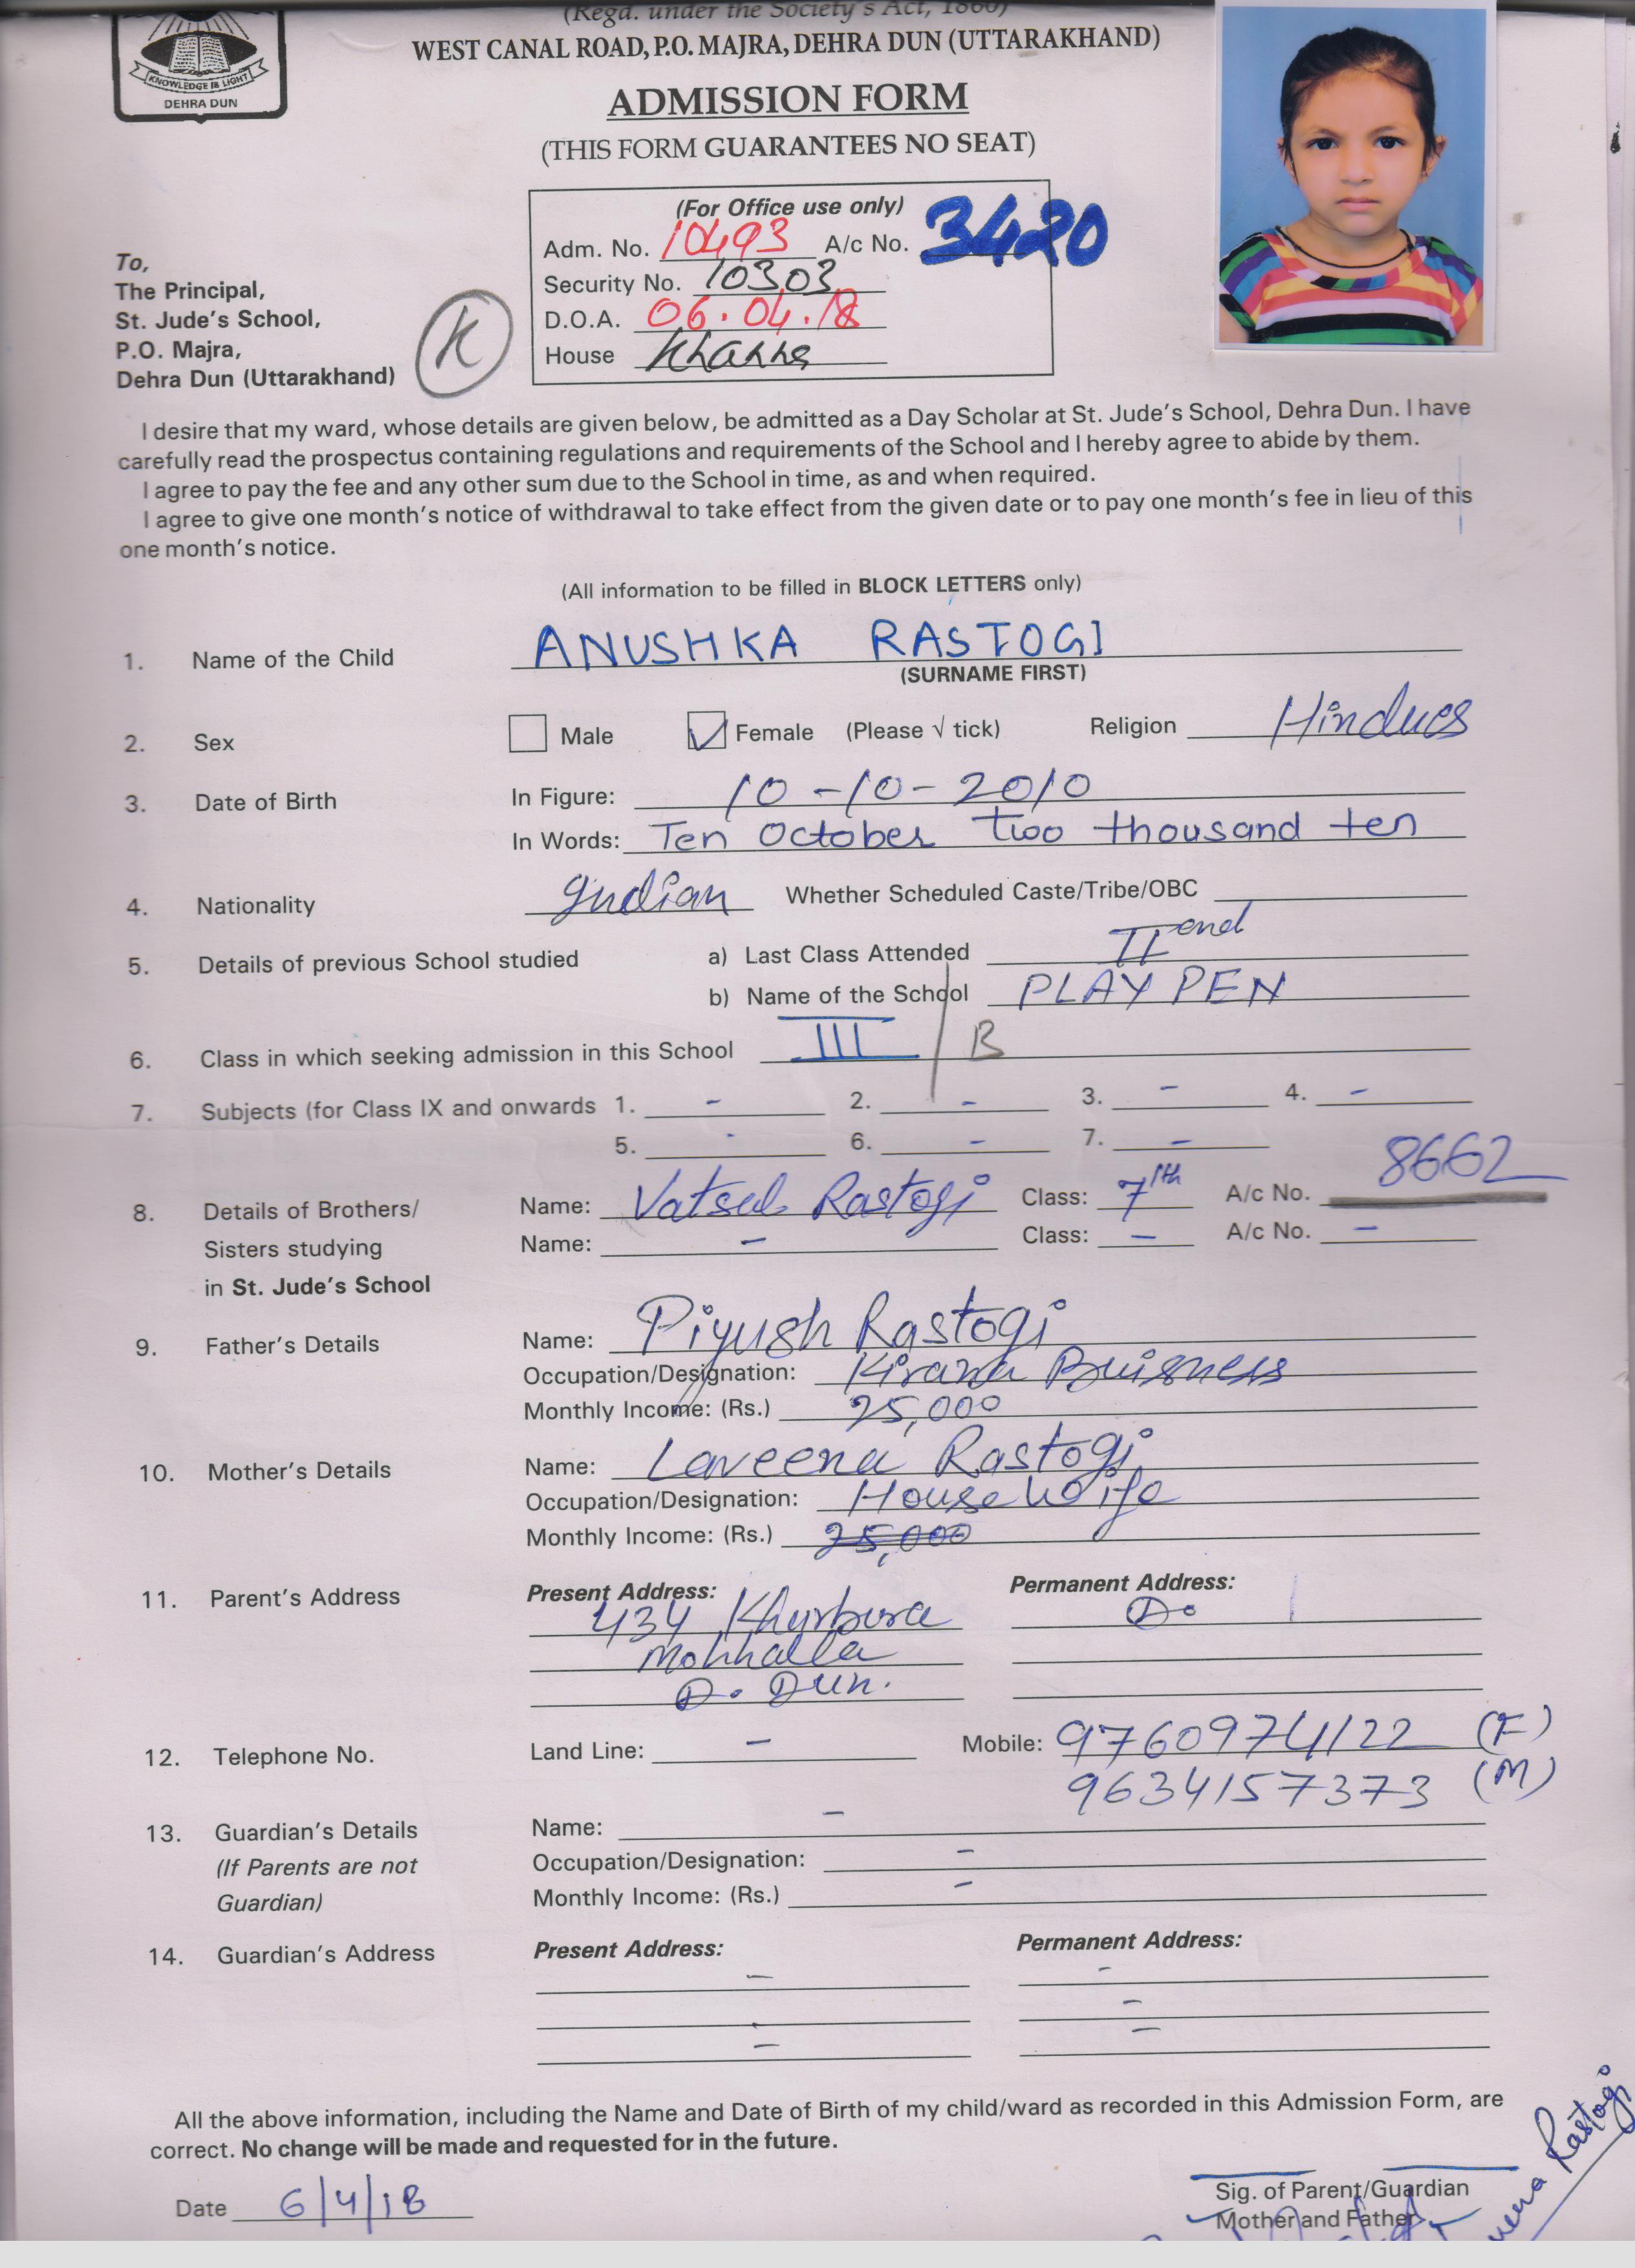 (Regd. under the Society's Act, 1860)
WEST CANAL ROAD, P.O. MAJRA, DEHRA DUN (UTTARAKHAND)
KNOWLEDGE IS LIGHT
DEHRA DUN
ADMISSION FORM
(THIS FORM GUARANTEES NO SEAT)
(For Office use only)
Adm. No. 10493 A/c No. 3420
Security No. 10303
D.O.A. 06.04.18
House Khanna
To,
The Principal,
St. Jude's School,
P.O. Majra,
Dehra Dun (Uttarakhand)
K
I desire that my ward, whose details are given below, be admitted as a Day Scholar at St. Jude's School, Dehra Dun. I have
carefully read the prospectus containing regulations and requirements of the School and I hereby agree to abide by them.
I agree to pay the fee and any other sum due to the School in time, as and when required.
I agree to give one month's notice of withdrawal to take effect from the given date or to pay one month's fee in lieu of this
one month's notice.
(All information to be filled in BLOCK LETTERS only)
1. Name of the Child ANUSHKA RASTOGI
(SURNAME FIRST)
2. Sex Male Female (Please √ tick) Religion Hindues
3. Date of Birth In Figure: 10-10-2010
In Words: Ten October two thousand ten
4. Nationality Indian Whether Scheduled Caste/Tribe/OBC
5. Details of previous School studied a) Last Class Attended II end
b) Name of the School PLAY PEN
6. Class in which seeking admission in this School III / B
7. Subjects (for Class IX and onwards 1. - 2. - 3. - 4. -
5. - 6. - 7. -
8. Details of Brothers/ Name: Vatsal Rastogi Class: 7th A/c No. 8662
Sisters studying Name: - Class: - A/c No. -
in St. Jude's School
9. Father's Details Name: Piyush Rastogi
Occupation/Designation: Kirana Buisness
Monthly Income: (Rs.) 25,000
10. Mother's Details Name: Laveena Rastogi
Occupation/Designation: House Wife
Monthly Income: (Rs.) 25,000
11. Parent's Address Present Address: Permanent Address:
434 Khurbura Do
Mohhalla
D. Dun.
12. Telephone No. Land Line: - Mobile: 9760974122 (F)
9634157373 (M)
13. Guardian's Details Name: -
(If Parents are not Occupation/Designation: -
Guardian) Monthly Income: (Rs.) -
14. Guardian's Address Present Address: Permanent Address:
- -
- -
- -
All the above information, including the Name and Date of Birth of my child/ward as recorded in this Admission Form, are
correct. No change will be made and requested for in the future.
Date 6/4/18
Sig. of Parent/Guardian
Mother and Father
Rastogi